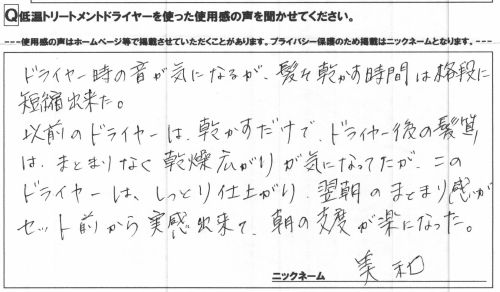 Q低温トリートメントドライヤーを使った使用感の声を聞かせてください。
---使用感の声はホームページ等で掲載させていただくことがあります。プライバシー保護のため掲載はニックネームとなります。---
ドライヤー時の音が気になるが、髪を乾かす時間は格段に
短縮出来た。
以前のドライヤーは、乾かすだけで、ドライヤー後の髪質
は、まとまりなく乾燥広がりが気になってたが、この
ドライヤーは、しっとり仕上がり、翌朝のまとまり感が
セット前から実感出来て、朝の支度が楽になった。
ニックネーム 美和